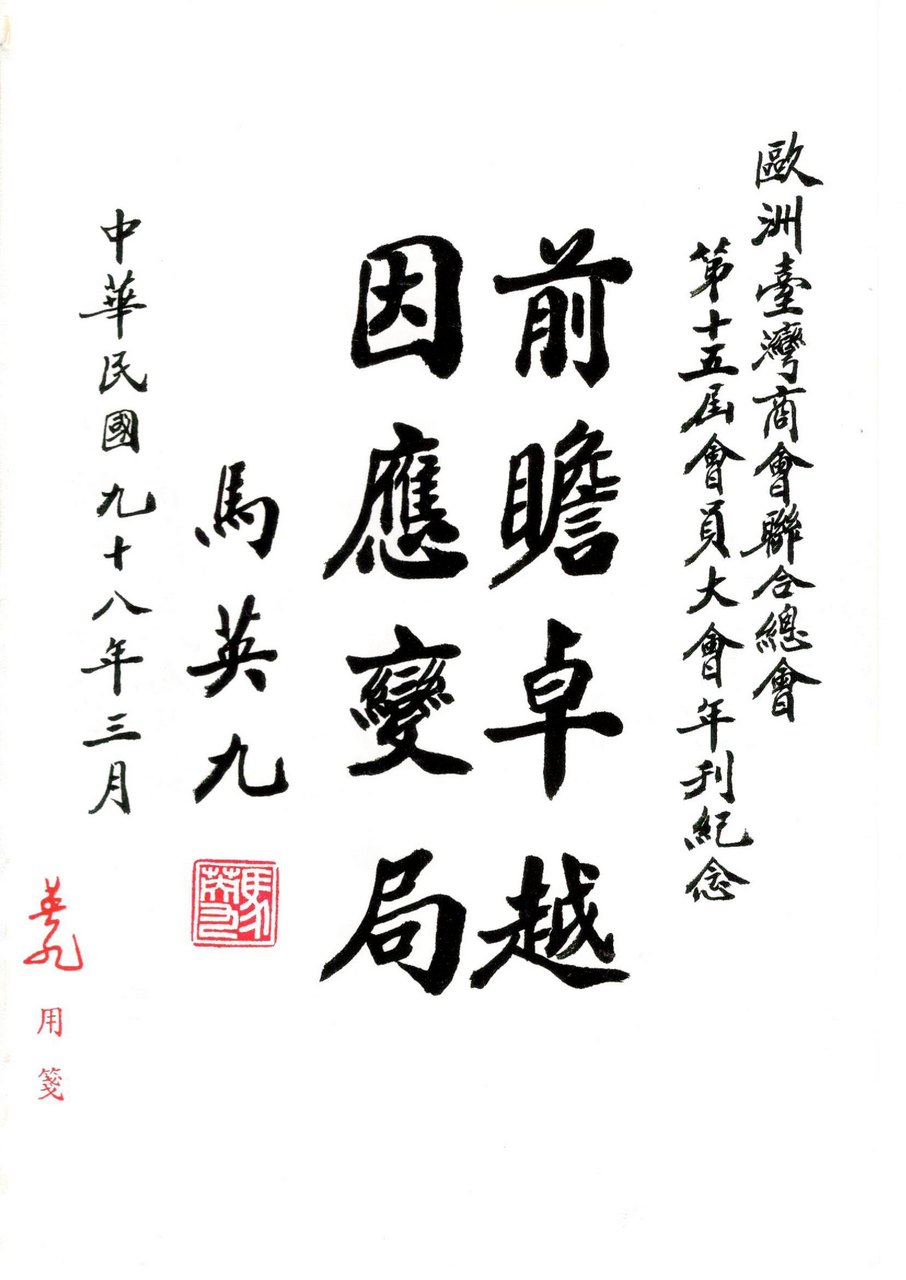 歐洲臺灣商會聯合總會
第十五屆會員大會年刊紀念
前瞻卓越
因應變局
馬英九
馬英九
中華民國九十八年三月
英九
用箋